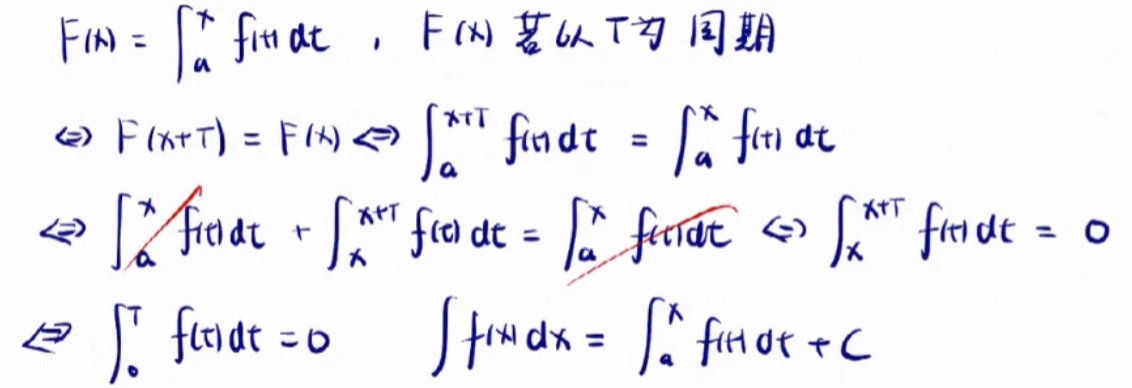 F(x) = ∫_a^x f(t) dt , F(x) 若以 T 为 周期
⇔ F(x+T) = F(x) ⇔ ∫_a^{x+T} f(t) dt = ∫_a^x f(t) dt
⇔ ∫_a^x f(t) dt + ∫_x^{x+T} f(t) dt = ∫_a^x f(t) dt ⇔ ∫_x^{x+T} f(t) dt = 0
⇔ ∫_0^T f(t) dt = 0 ∫ f(x) dx = ∫_a^x f(t) dt + C